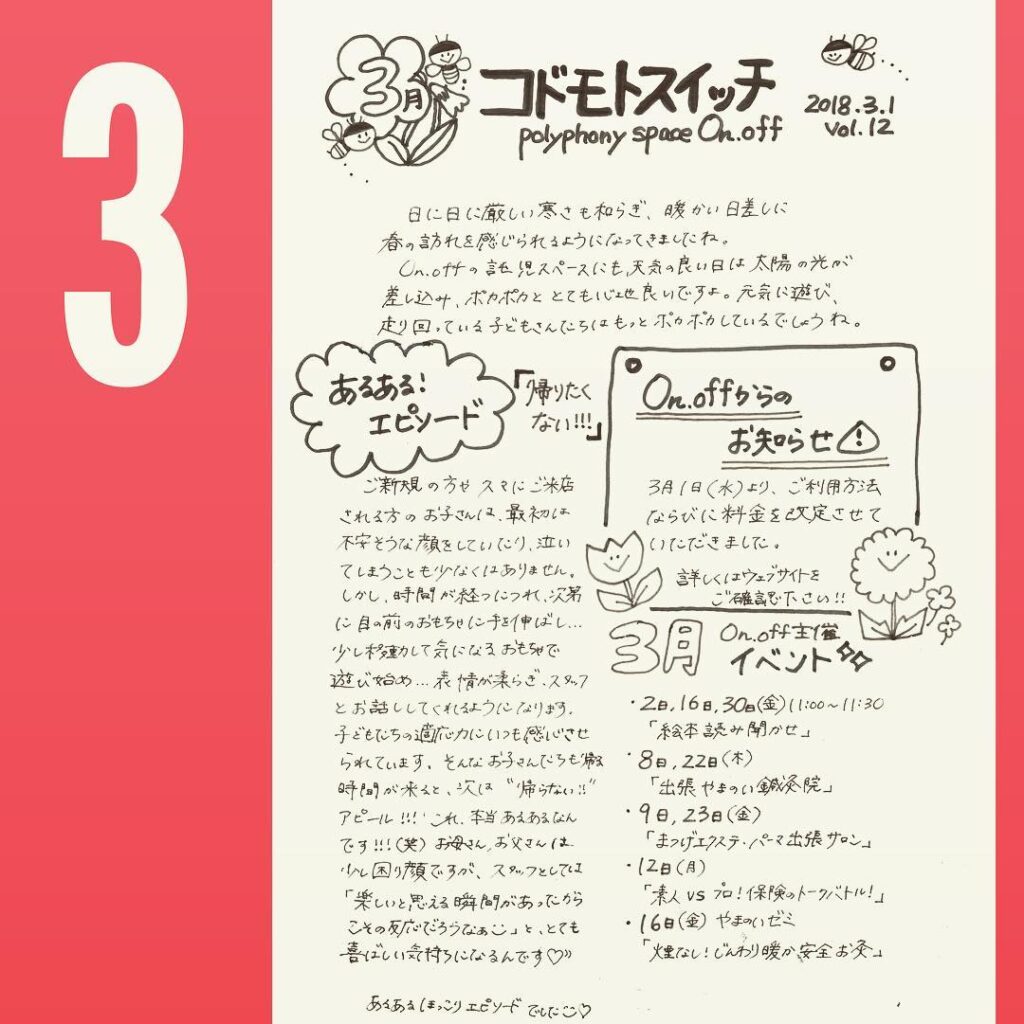 3
3月
コドモトスイッチ
polyphony space On.off
2018.3.1
vol.12
日に日に厳しい寒さも和らぎ、暖かい日差しに
春の訪れを感じられるようになってきましたね。
On.offの託児スペースにも、天気の良い日は太陽の光が
差し込み、ポカポカととても心地良いですよ。元気に遊び、
走り回っている子どもさんたちはもっとポカポカしているでしょうね。
あるある!
エピソード
「帰りたく
ない!!!」
ご新規の方やスマにご来店
される方のお子さんは、最初は
不安そうな顔をしていたり、泣い
てしまうことも少なくはありません。
しかし、時間が経つにつれ、次第
に目の前のおもちゃに手を伸ばし…
少し移動して気になるおもちゃで
遊び始め…表情が柔らぎ、スタッフ
とお話ししてくれるようになります。
子どもたちの適応力にいつも感心させ
られています。そんなお子さんたちも帰る
時間が来ると、次は"帰らない!!"
アピール!!!これ、本当あるあるなん
です!!!(笑)お母さん、お父さんは
少し困り顔ですが、スタッフとしては
「楽しいと思える瞬間があったから
こその反応だろうなぁ」と、とても
喜ばしい気持ちになるんです♡))
あるあるほっこりエピソードでした♡
On.offからの
お知らせ
3月1日(水)より、ご利用方法
ならびに料金を改定させて
いただきました。
詳しくはウェブサイトを
ご確認下さい!!
3月 On.off主催
イベント
・2日,16日,30日(金)11:00~11:30
「絵本読み聞かせ」
・8日,22日(木)
「出張やまのい鍼灸院」
・9日,23日(金)
「まつげエクステ・パーマ出張サロン」
・12日(月)
「素人vsプロ!保険のトークバトル!」
・16日(金)やまのいゼミ
「煙なし!じんわり暖か安全お灸」